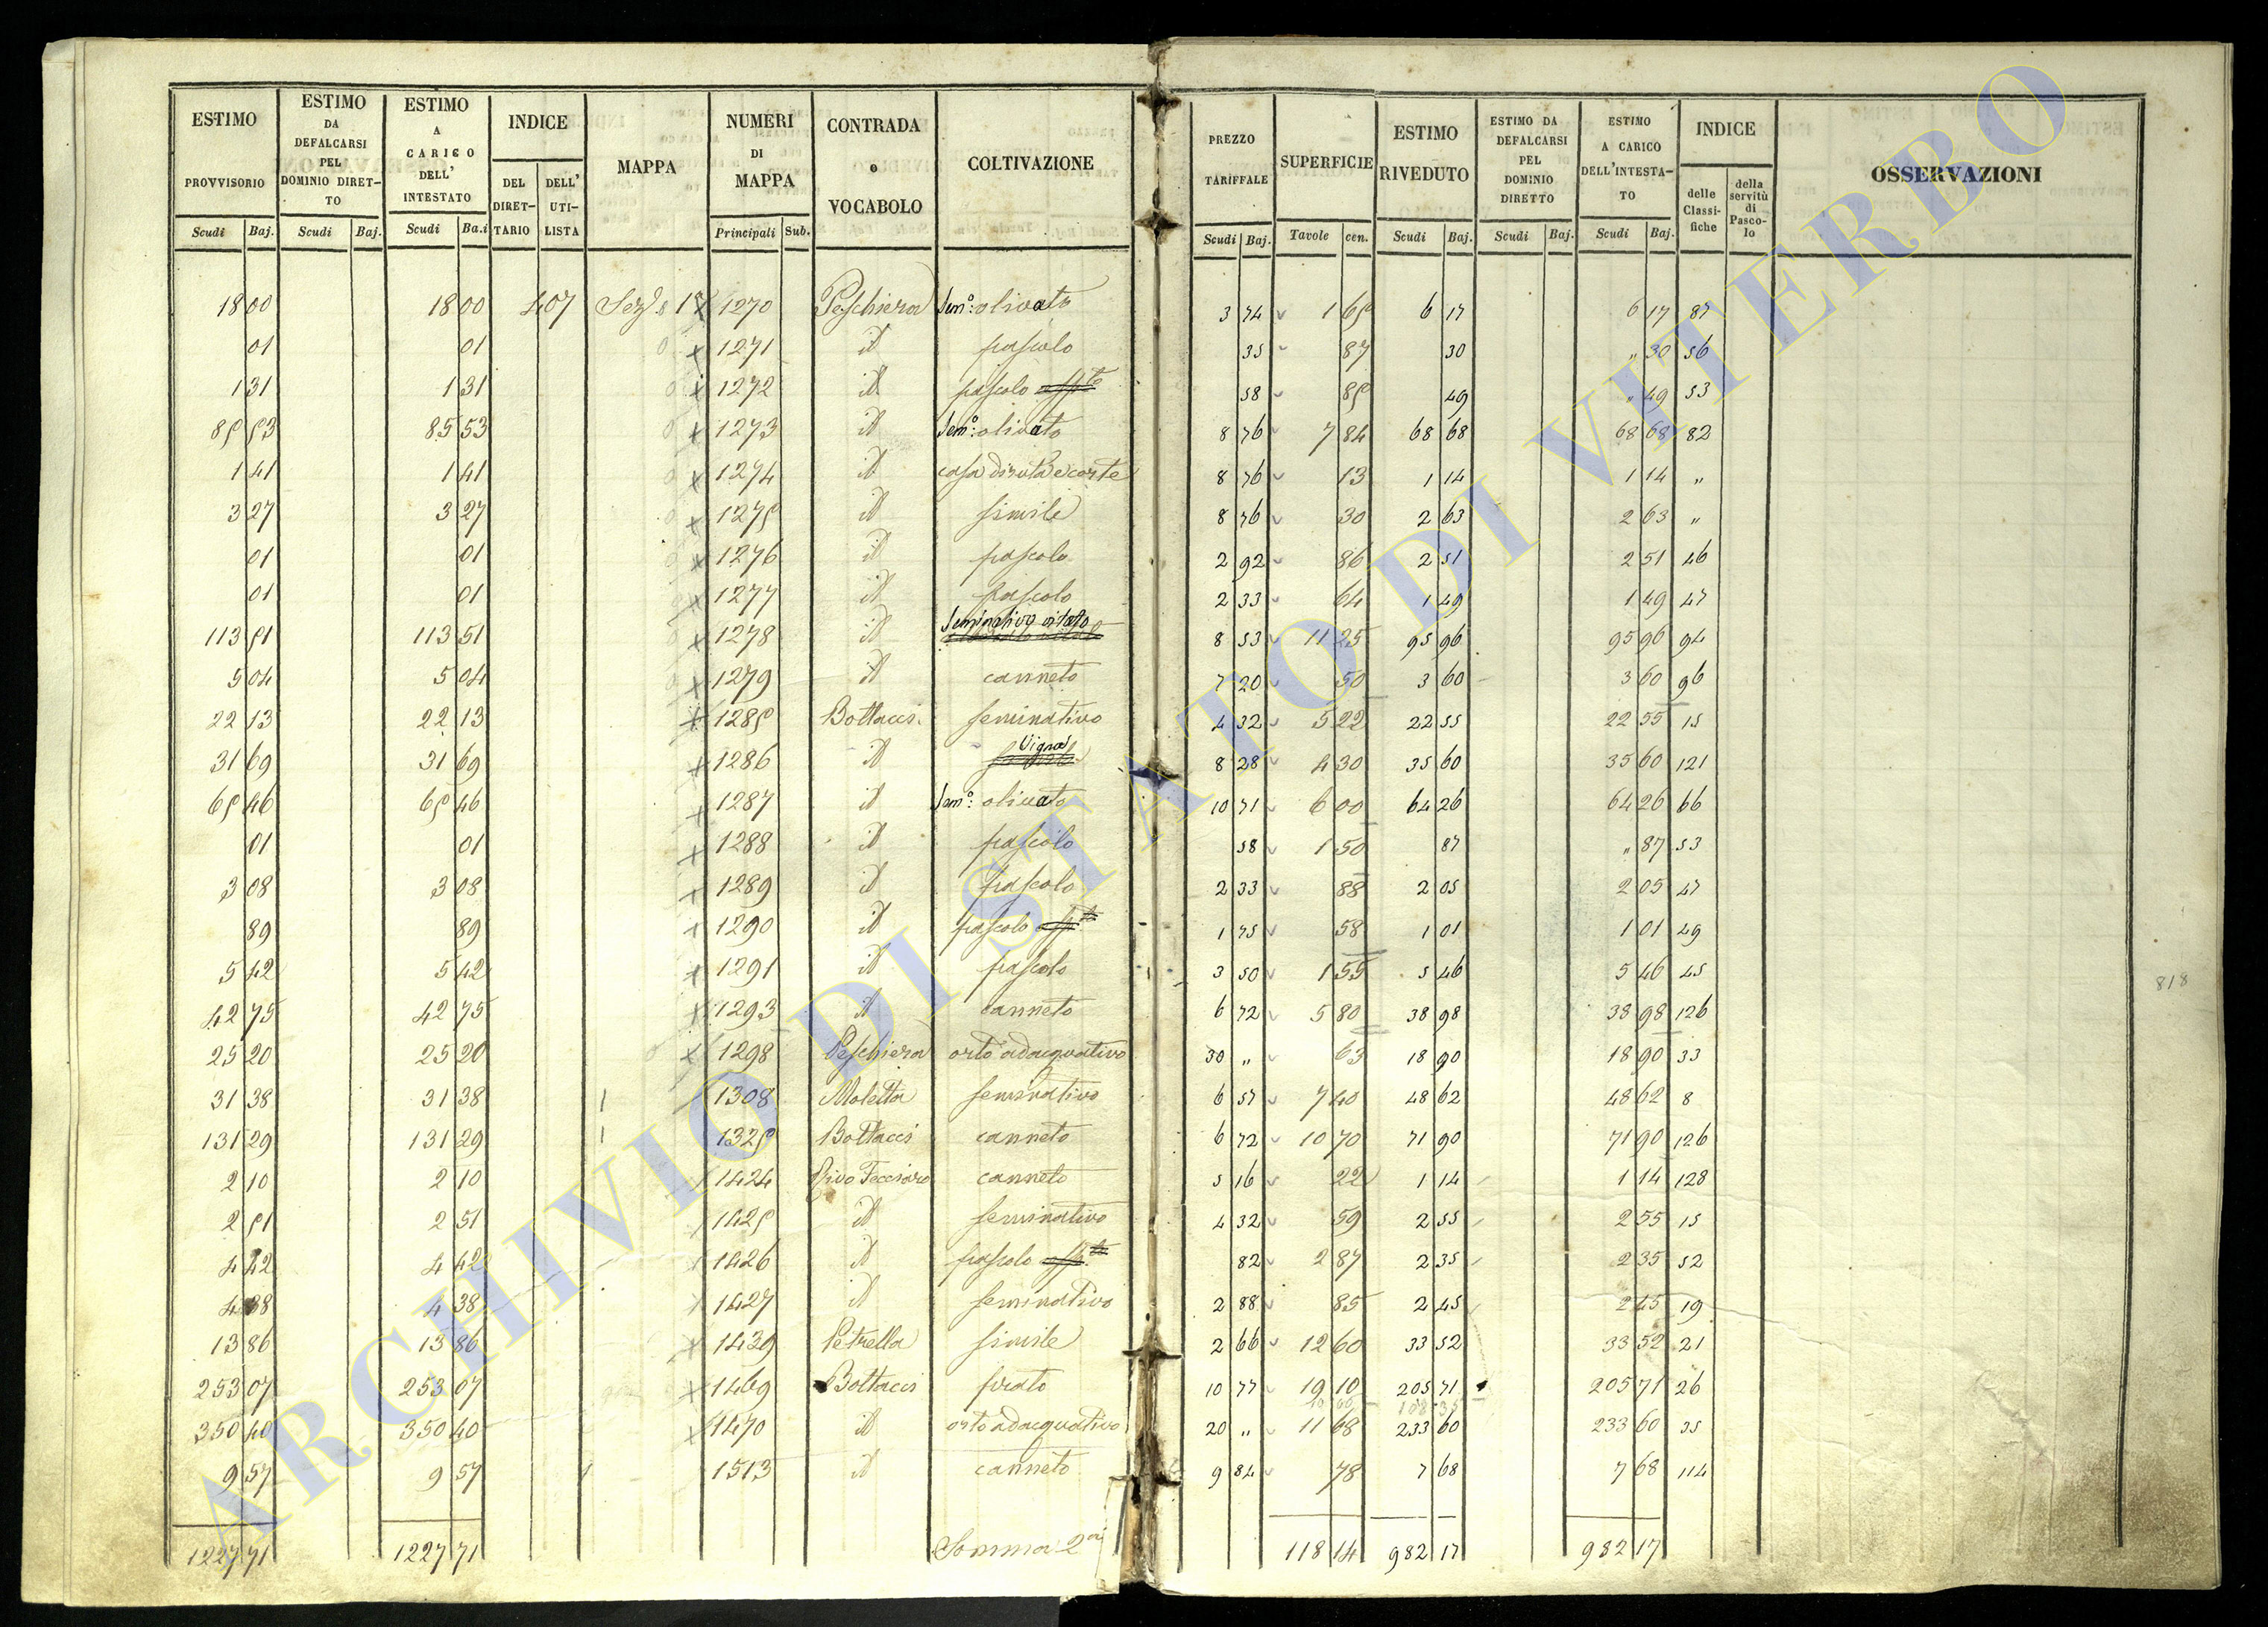 ESTIMO PROVVISORIO Scudi Baj.
ESTIMO DA DEFALCARSI PEL DOMINIO DIRET-TO Scudi Baj.
ESTIMO A CARICO DELL' INTESTATO Scudi Ba.i
INDICE DEL DIRET-TARIO DELL' UTI-LISTA
MAPPA
NUMERI DI MAPPA Principali Sub.
CONTRADA o VOCABOLO
COLTIVAZIONE
PREZZO TARIFFALE Scudi Baj.
SUPERFICIE Tavole cen.
ESTIMO RIVEDUTO Scudi Baj.
ESTIMO DA DEFALCARSI PEL DOMINIO DIRETTO Scudi Baj.
ESTIMO A CARICO DELL'INTESTA-TO Scudi Baj.
INDICE delle Classi-fiche della servitù di Pasco-lo
OSSERVAZIONI
18 00 18 00 407 1270 Peschiera Sem.o olivato 3 74 1 65 6 17 6 17 87
01 01 1271 id pascolo 35 87 30 " 30 56
1 31 1 31 1272 id pascolo 58 85 49 " 49 53
85 53 85 53 1273 id Sem.o olivato 8 76 7 84 68 68 68 68 82
1 41 1 41 1274 id casa diruta e corte 8 76 13 1 14 1 14 "
3 27 3 27 1275 id simile 8 76 30 2 63 2 63 "
01 01 1276 id pascolo 2 92 86 2 51 2 51 46
01 01 1277 id pascolo 2 33 64 1 49 1 49 47
113 51 113 51 1278 id Seminativo vitato 8 53 11 25 95 96 95 96 94
5 04 5 04 1279 id canneto 7 20 50 3 60 3 60 96
22 13 22 13 1285 Bottacci seminativo 4 32 5 22 22 55 22 55 15
31 69 31 69 1286 id Vigna 8 28 4 30 35 60 35 60 121
65 46 65 46 1287 id Sem.o olivato 10 71 6 00 64 26 64 26 66
01 01 1288 id pascolo 58 1 50 87 " 87 53
3 08 3 08 1289 id pascolo 2 33 88 2 05 2 05 47
89 89 1290 id pascolo 1 75 58 1 01 1 01 49
5 42 5 42 1291 id pascolo 3 50 1 55 5 46 5 46 45
42 75 42 75 1293 id canneto 6 72 5 80 38 98 38 98 126
25 20 25 20 1298 Peschiera orto adacquativo 30 " 63 18 90 18 90 33
31 38 31 38 1308 Moletta seminativo 6 57 7 40 48 62 48 62 8
131 29 131 29 1325 Bottacci canneto 6 72 10 70 71 90 71 90 126
2 10 2 10 1424 canneto 5 16 22 1 14 1 14 128
2 51 2 51 1425 id seminativo 4 32 59 2 55 2 55 15
4 42 4 42 1426 id pascolo 82 2 87 2 35 2 35 52
4 38 4 38 1427 id seminativo 2 88 85 2 45 2 45 19
13 86 13 86 1439 Petrella simile 2 66 12 60 33 52 33 52 21
253 07 253 07 1469 Bottacci prato 10 77 19 10 205 71 205 71 26
350 40 350 40 1470 id orto adacquativo 20 " 11 68 233 60 233 60 35
9 57 9 57 1513 id canneto 9 84 78 7 68 7 68 114
1227 71 1227 71 Somma 2a 118 14 982 17 982 17
818
ARCHIVIO DI STATO DI VITERBO